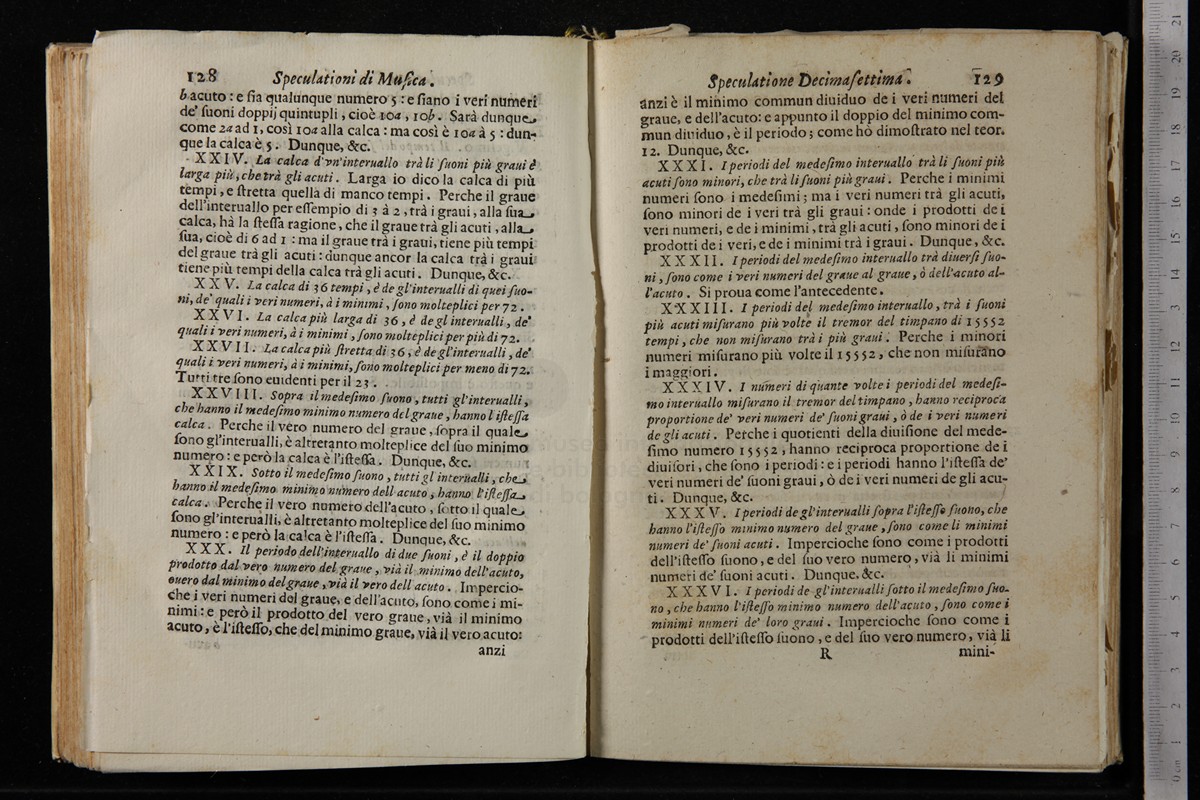 128 Speculationi di Muſica.
b acuto : e ſia qualunque numero 5 : e ſiano i veri numeri
de' ſuoni doppij quintupli, cioè 10a, 10b. Sarà dunque
come 2a ad 1, così 10a alla calca : ma così è 10a à 5 : dun-
que la calca è 5. Dunque, &c.
XXIV. La calca d'vn'interuallo trà li ſuoni più graui è
larga più, che trà gli acuti. Larga io dico la calca di più
tempi, e ſtretta quella di manco tempi. Perche il graue
dell'interuallo per eſſempio di 3 à 2, trà i graui, alla ſua
calca, hà la ſteſſa ragione, che il graue trà gli acuti, alla
ſua, cioè di 6 ad 1 : ma il graue trà i graui, tiene più tempi
del graue trà gli acuti : dunque ancor la calca trà i graui
tiene più tempi della calca trà gli acuti. Dunque, &c.
XXV. La calca di 36 tempi, è de gl'interualli di quei ſuo-
ni, de' quali i veri numeri, à i minimi, ſono molteplici per 72.
XXVI. La calca più larga di 36, è de gl interualli, de'
quali i veri numeri, à i minimi, ſono molteplici per più di 72.
XXVII. La calca più ſtretta di 36, è de gl'interualli, de'
quali i veri numeri, à i minimi, ſono molteplici per meno di 72.
Tutti tre ſono euidenti per il 23.
XXVIII. Sopra il medeſimo ſuono, tutti gl'interualli,
che hanno il medeſimo minimo numero del graue, hanno l'iſteſſa
calca. Perche il vero numero del graue, ſopra il quale
ſono gl'interualli, è altretanto molteplice del ſuo minimo
numero : e però la calca è l'iſteſſa. Dunque, &c.
XXIX. Sotto il medeſimo ſuono, tutti gl interualli, che
hanno il medeſimo minimo numero dell acuto, hanno l'iſteſſa
calca. Perche il vero numero dell'acuto, ſotto il quale
ſono gl'interualli, è altretanto molteplice del ſuo minimo
numero : e però la calca è l'iſteſſa. Dunque, &c.
XXX. Il periodo dell'interuallo di due ſuoni, è il doppio
prodotto dal vero numero del graue, vià il minimo dell'acuto,
ouero dal minimo del graue, vià il vero dell'acuto. Impercio-
che i veri numeri del graue, e dell'acuto, ſono come i mi-
nimi : e però il prodotto del vero graue, vià il minimo
acuto, è l'iſteſſo, che del minimo graue, vià il vero acuto:
anzi
Speculatione Decimaſettima. 129
anzi è il minimo commun diuiduo de i veri numeri del
graue, e dell'acuto: e appunto il doppio del minimo com-
mun diuiduo, è il periodo; come hò dimoſtrato nel teor.
12. Dunque, &c.
XXXI. I periodi del medeſimo interuallo trà li ſuoni più
acuti ſono minori, che trà li ſuoni più graui. Perche i minimi
numeri ſono i medeſimi; ma i veri numeri trà gli acuti,
ſono minori de i veri trà gli graui : onde i prodotti de i
veri numeri, e de i minimi, trà gli acuti, ſono minori de i
prodotti de i veri, e de i minimi trà i graui. Dunque, &c.
XXXII. I periodi del medeſimo interuallo trà diuerſi ſuo-
ni, ſono come i veri numeri del graue al graue, ò dell'acuto al-
l'acuto. Si proua come l'antecedente.
XXXIII. I periodi del medeſimo interuallo, trà i ſuoni
più acuti miſurano più volte il tremor del timpano di 15552
tempi, che non miſurano trà i più graui. Perche i minori
numeri miſurano più volte il 15552, che non miſurano
i maggiori.
XXXIV. I numeri di quante volte i periodi del medeſi-
mo interuallo miſurano il tremor del timpano, hanno reciproca
proportione de' veri numeri de' ſuoni graui, ò de i veri numeri
de gli acuti. Perche i quotienti della diuiſione del mede-
ſimo numero 15552, hanno reciproca proportione de i
diuiſori, che ſono i periodi : e i periodi hanno l'iſteſſa de'
veri numeri de' ſuoni graui, ò de i veri numeri de gli acu-
ti. Dunque, &c.
XXXV. I periodi de gl'interualli ſopra l'iſteſſo ſuono, che
hanno l'iſteſſo minimo numero del graue, ſono come li minimi
numeri de' ſuoni acuti. Impercioche ſono come i prodotti
dell'iſteſſo ſuono, e del ſuo vero numero, vià li minimi
numeri de' ſuoni acuti. Dunque, &c.
XXXVI. I periodi de gl'interualli ſotto il medeſimo ſuo-
no, che hanno l'iſteſſo minimo numero dell'acuto, ſono come i
minimi numeri de' loro graui. Impercioche ſono come i
prodotti dell'iſteſſo ſuono, e del ſuo vero numero, vià li
R mini-